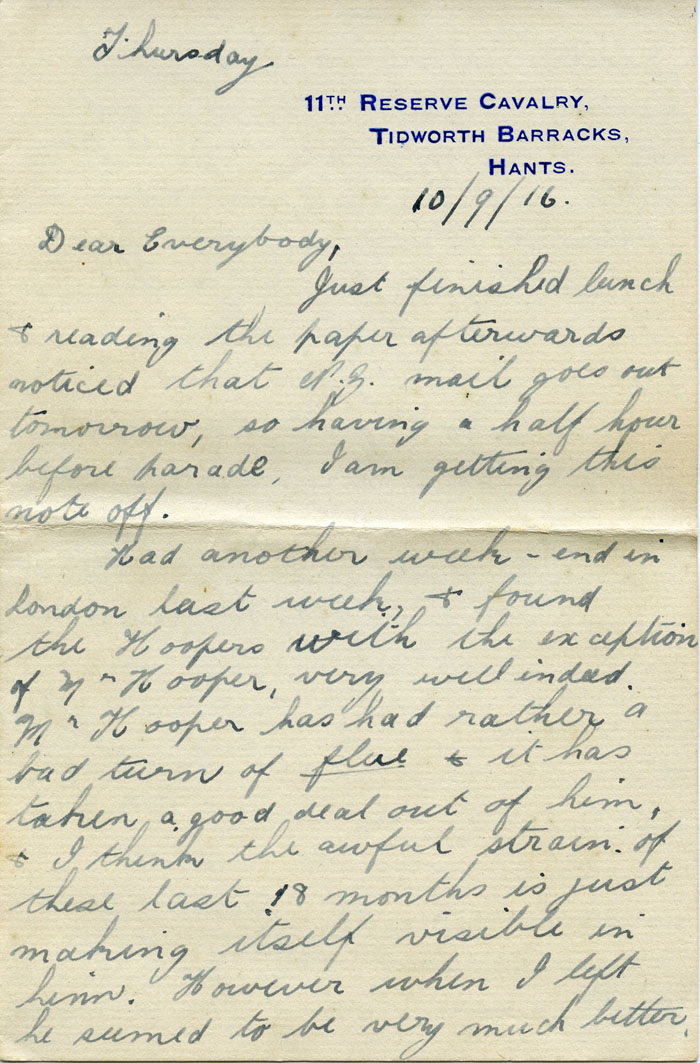 Thursday
11TH RESERVE CAVALRY,
TIDWORTH BARRACKS,
HANTS.
10/9/16.
Dear Everybody,
Just finished lunch
& reading the paper afterwards
noticed that N.Z. mail goes out
tomorrow, so having a half hour
before parade, I am getting this
note off.
Had another week-end in
London last week, & found
the Hoopers with the exception
of Mr Hooper, very well indeed.
Mr Hooper has had rather a
bad turn of flue & it has
taken a good deal out of him,
& I think the awful strain of
these last 18 months is just
making itself visible in
him. However when I left
he seemed to be very much better.